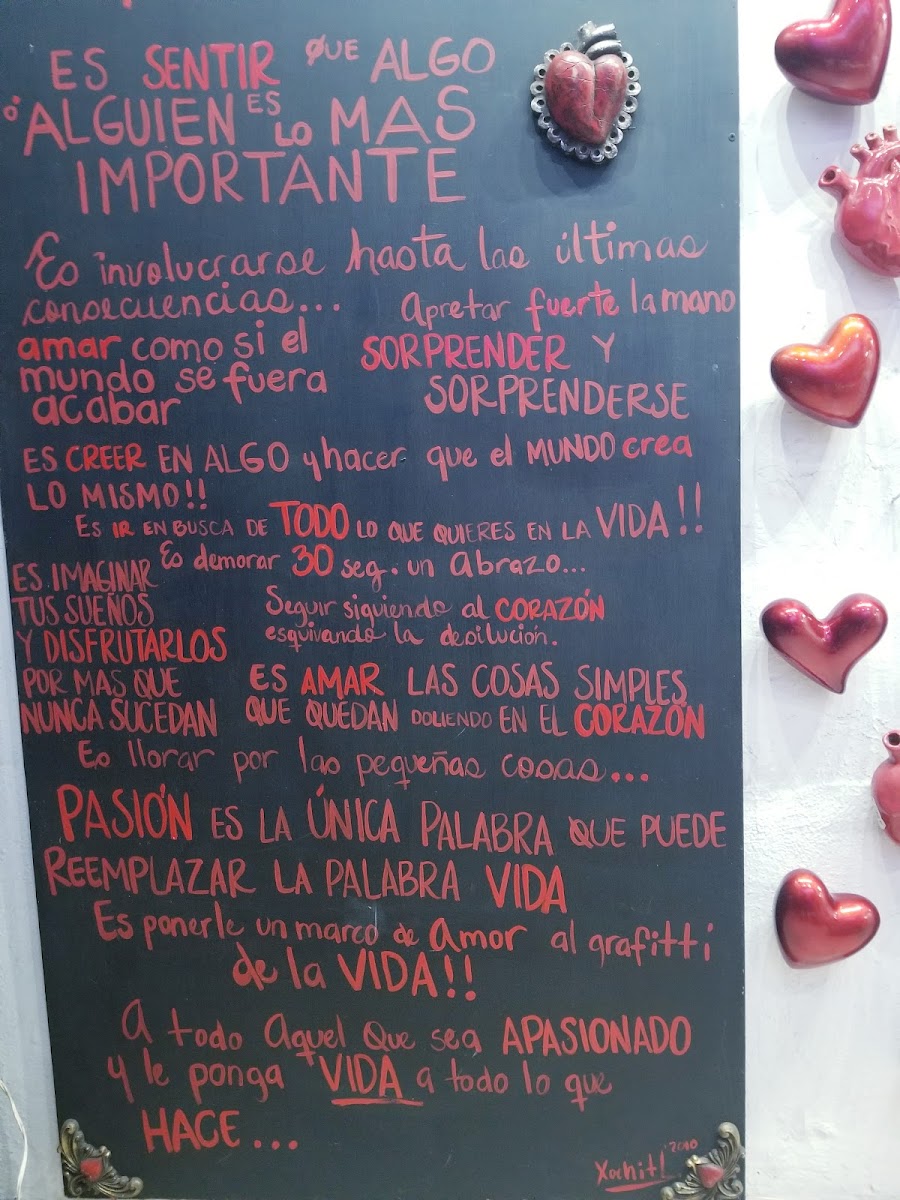 ES SENTIR QUE ALGO
ó ALGUIEN ES LO MAS
IMPORTANTE
Es involucrarse hasta las últimas
consecuencias...
Apretar fuerte la mano
amar como si el
mundo se fuera
acabar
SORPRENDER Y
SORPRENDERSE
ES CREER EN ALGO y hacer que el MUNDO crea
LO MISMO!!
ES IR EN BUSCA DE TODO LO QUE QUIERES EN LA VIDA!!
Es demorar 30 seg. un Abrazo...
ES IMAGINAR
TUS SUEÑOS
Y DISFRUTARLOS
POR MAS QUE
NUNCA SUCEDAN
Seguir siguiendo al CORAZÓN
esquivando la desilución.
ES AMAR LAS COSAS SIMPLES
QUE QUEDAN DOLIENDO EN EL CORAZÓN
Es llorar por las pequeñas cosas...
PASIÓN ES LA ÚNICA PALABRA QUE PUEDE
REEMPLAZAR LA PALABRA VIDA
Es ponerle un marco de Amor al grafitti
de la VIDA!!
A todo Aquel Que sea APASIONADO
y le ponga VIDA a todo lo que
HACE...
Xochitl '2010